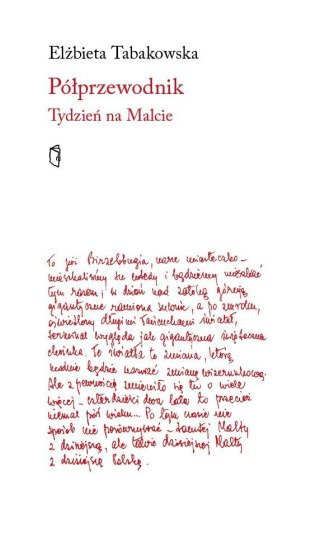 Elżbieta Tabakowska
Półprzewodnik
Tydzień na Malcie
To jest Birżebbugia, nasze miasteczko –
mieszkaliśmy tu wtedy i będziemy mieszkać
tym razem; w dzień nad zatoką górują
gigantyczne ramiona suwnic, a po zmroku,
oświetlony długimi łańcuchami świateł,
terminal wygląda jak gigantyczna świąteczna
choinka. Te światła to zmiana, którą
można będzie nazwać zmianą wizerunkową.
Ale z pewnością zmieniło się tu o wiele
więcej – czterdzieści dwa lata to przecież
niemal pół wieku... Po tylu czasie nie
sposób nie porównywać – tamtej Malty
z dzisiejszą, ale także dzisiejszej Malty
z dzisiejszą Polską.